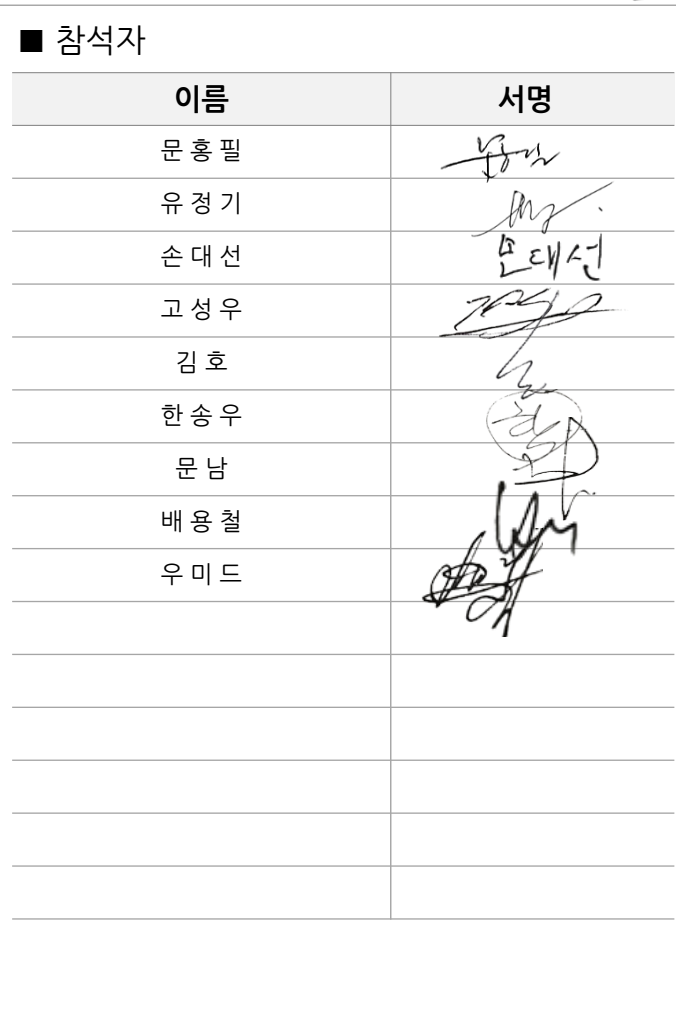 ■ 참석자
이름 서명
문 홍 필 문홍필
유 정 기
손 대 선 손대선
고 성 우
김 호
한 송 우
문 남
배 용 철
우 미 드